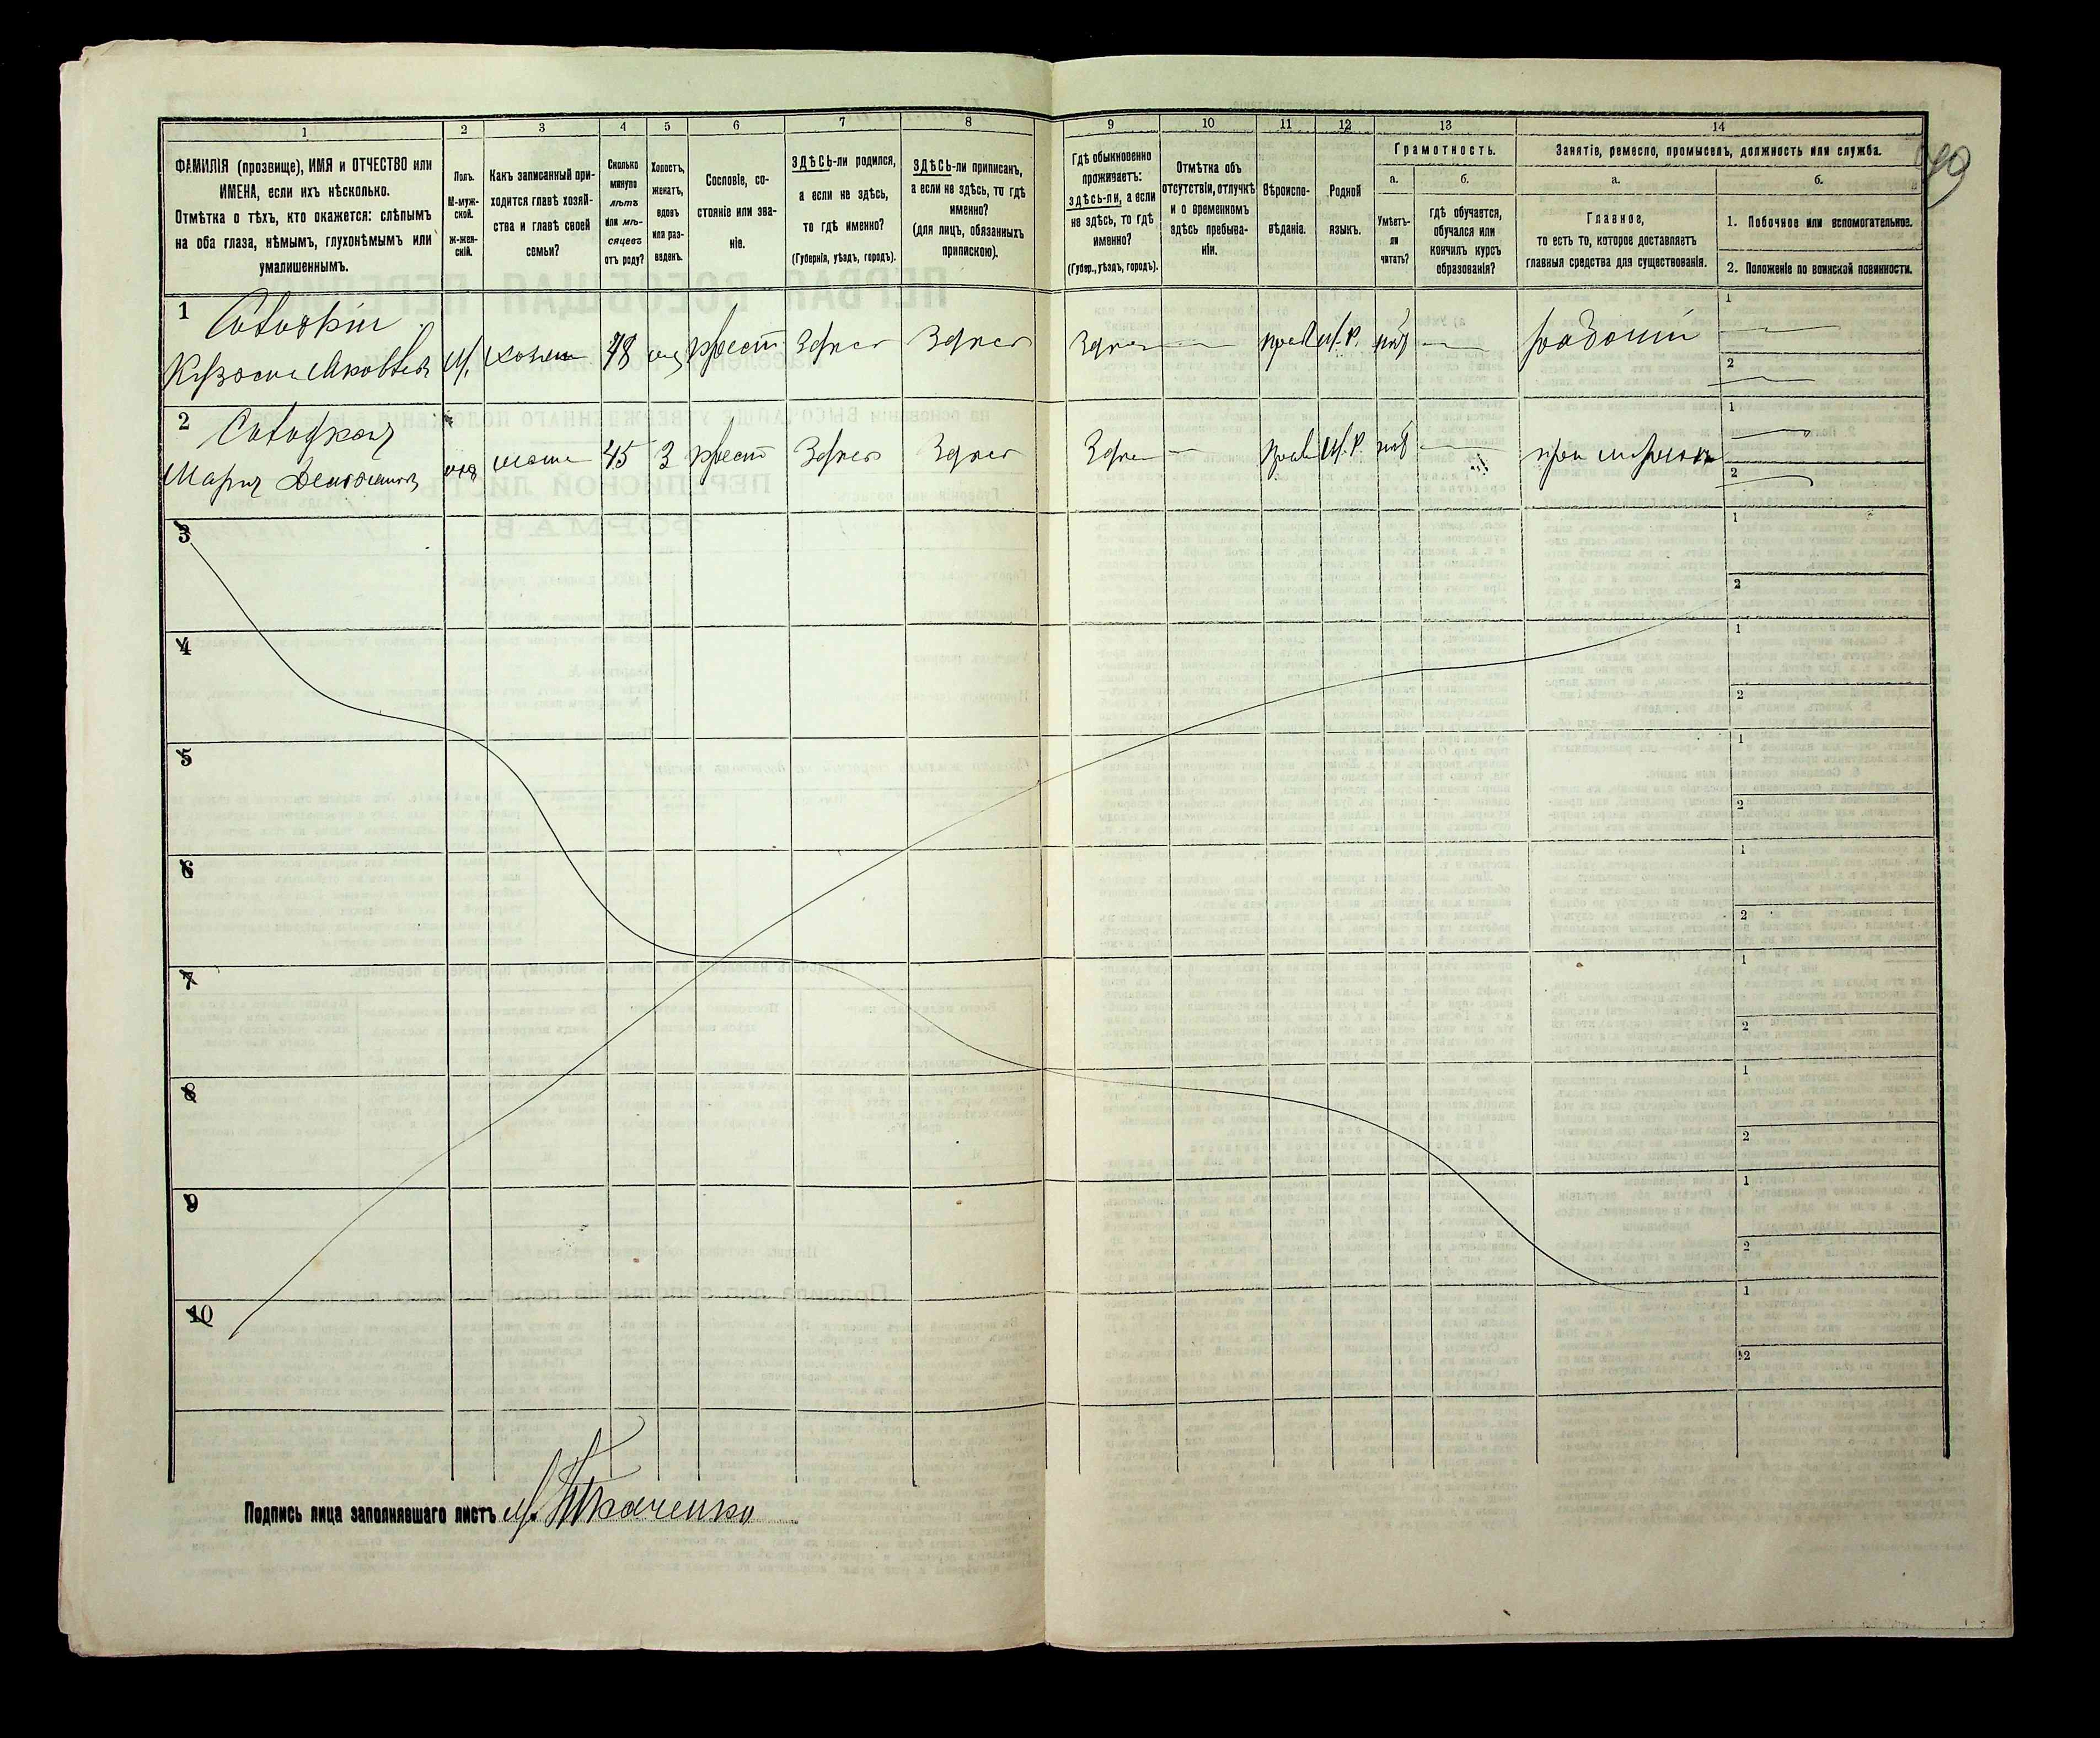 1 2 3 4 5 6 7 8 9 10 11 12 13 14
ФАМИЛІЯ (прозвище), ИМЯ и ОТЧЕСТВО или
ИМЕНА, если ихъ нѣсколько.
Отмѣтка о тѣхъ, кто окажется: слѣпымъ
на оба глаза, нѣмымъ, глухонѣмымъ или
умалишеннымъ.
Полъ.
М-муж-
ской.
Ж-жен-
скій.
Какъ записанный при-
ходится главѣ хозяй-
ства и главѣ своей
семьи?
Сколько
минуло
лѣтъ
или мѣ-
сяцевъ
отъ роду?
Холостъ,
женатъ,
вдовъ
или раз-
веденъ.
Сословіе, со-
стояніе или зва-
ніе.
ЗДѢСЬ-ли родился,
а если не здѣсь,
то гдѣ именно?
(Губернія, уѣздъ, городъ).
ЗДѢСЬ-ли приписанъ,
а если не здѣсь, то гдѣ
именно?
(для лицъ, обязанныхъ
припискою).
Гдѣ обыкновенно
проживаетъ:
здѣсь-ли, а если
не здѣсь, то гдѣ
именно?
(Губер., уѣздъ, городъ).
Отмѣтка объ
отсутствіи, отлучкѣ
и о временномъ
здѣсь пребыва-
ніи.
Вѣроиспо-
вѣданіе.
Родной
языкъ.
Грамотность.
а.
Умѣетъ-
ли
читать?
б.
гдѣ обучается,
обучался или
кончилъ курсъ
образованія?
Занятіе, ремесло, промыселъ, должность или служба.
а.
Главное,
то есть то, которое доставляетъ
главныя средства для существованія.
б.
1. Побочное или вспомогательное.
2. Положеніе по воинской повинности.
1
М. 48 крест Здѣсь Здѣсь Здѣсь — прав М.Р. — 1 —
2 —
2
Марія 45 З крест Здѣсь Здѣсь Здѣсь — прав М.Р. — при 1 —
2 —
3 1
2
4 1
2
5 1
2
6 1
2
7 1
2
8 1
2
9 1
2
10 1
2
Подпись лица заполнявшаго листъ Ткаченко